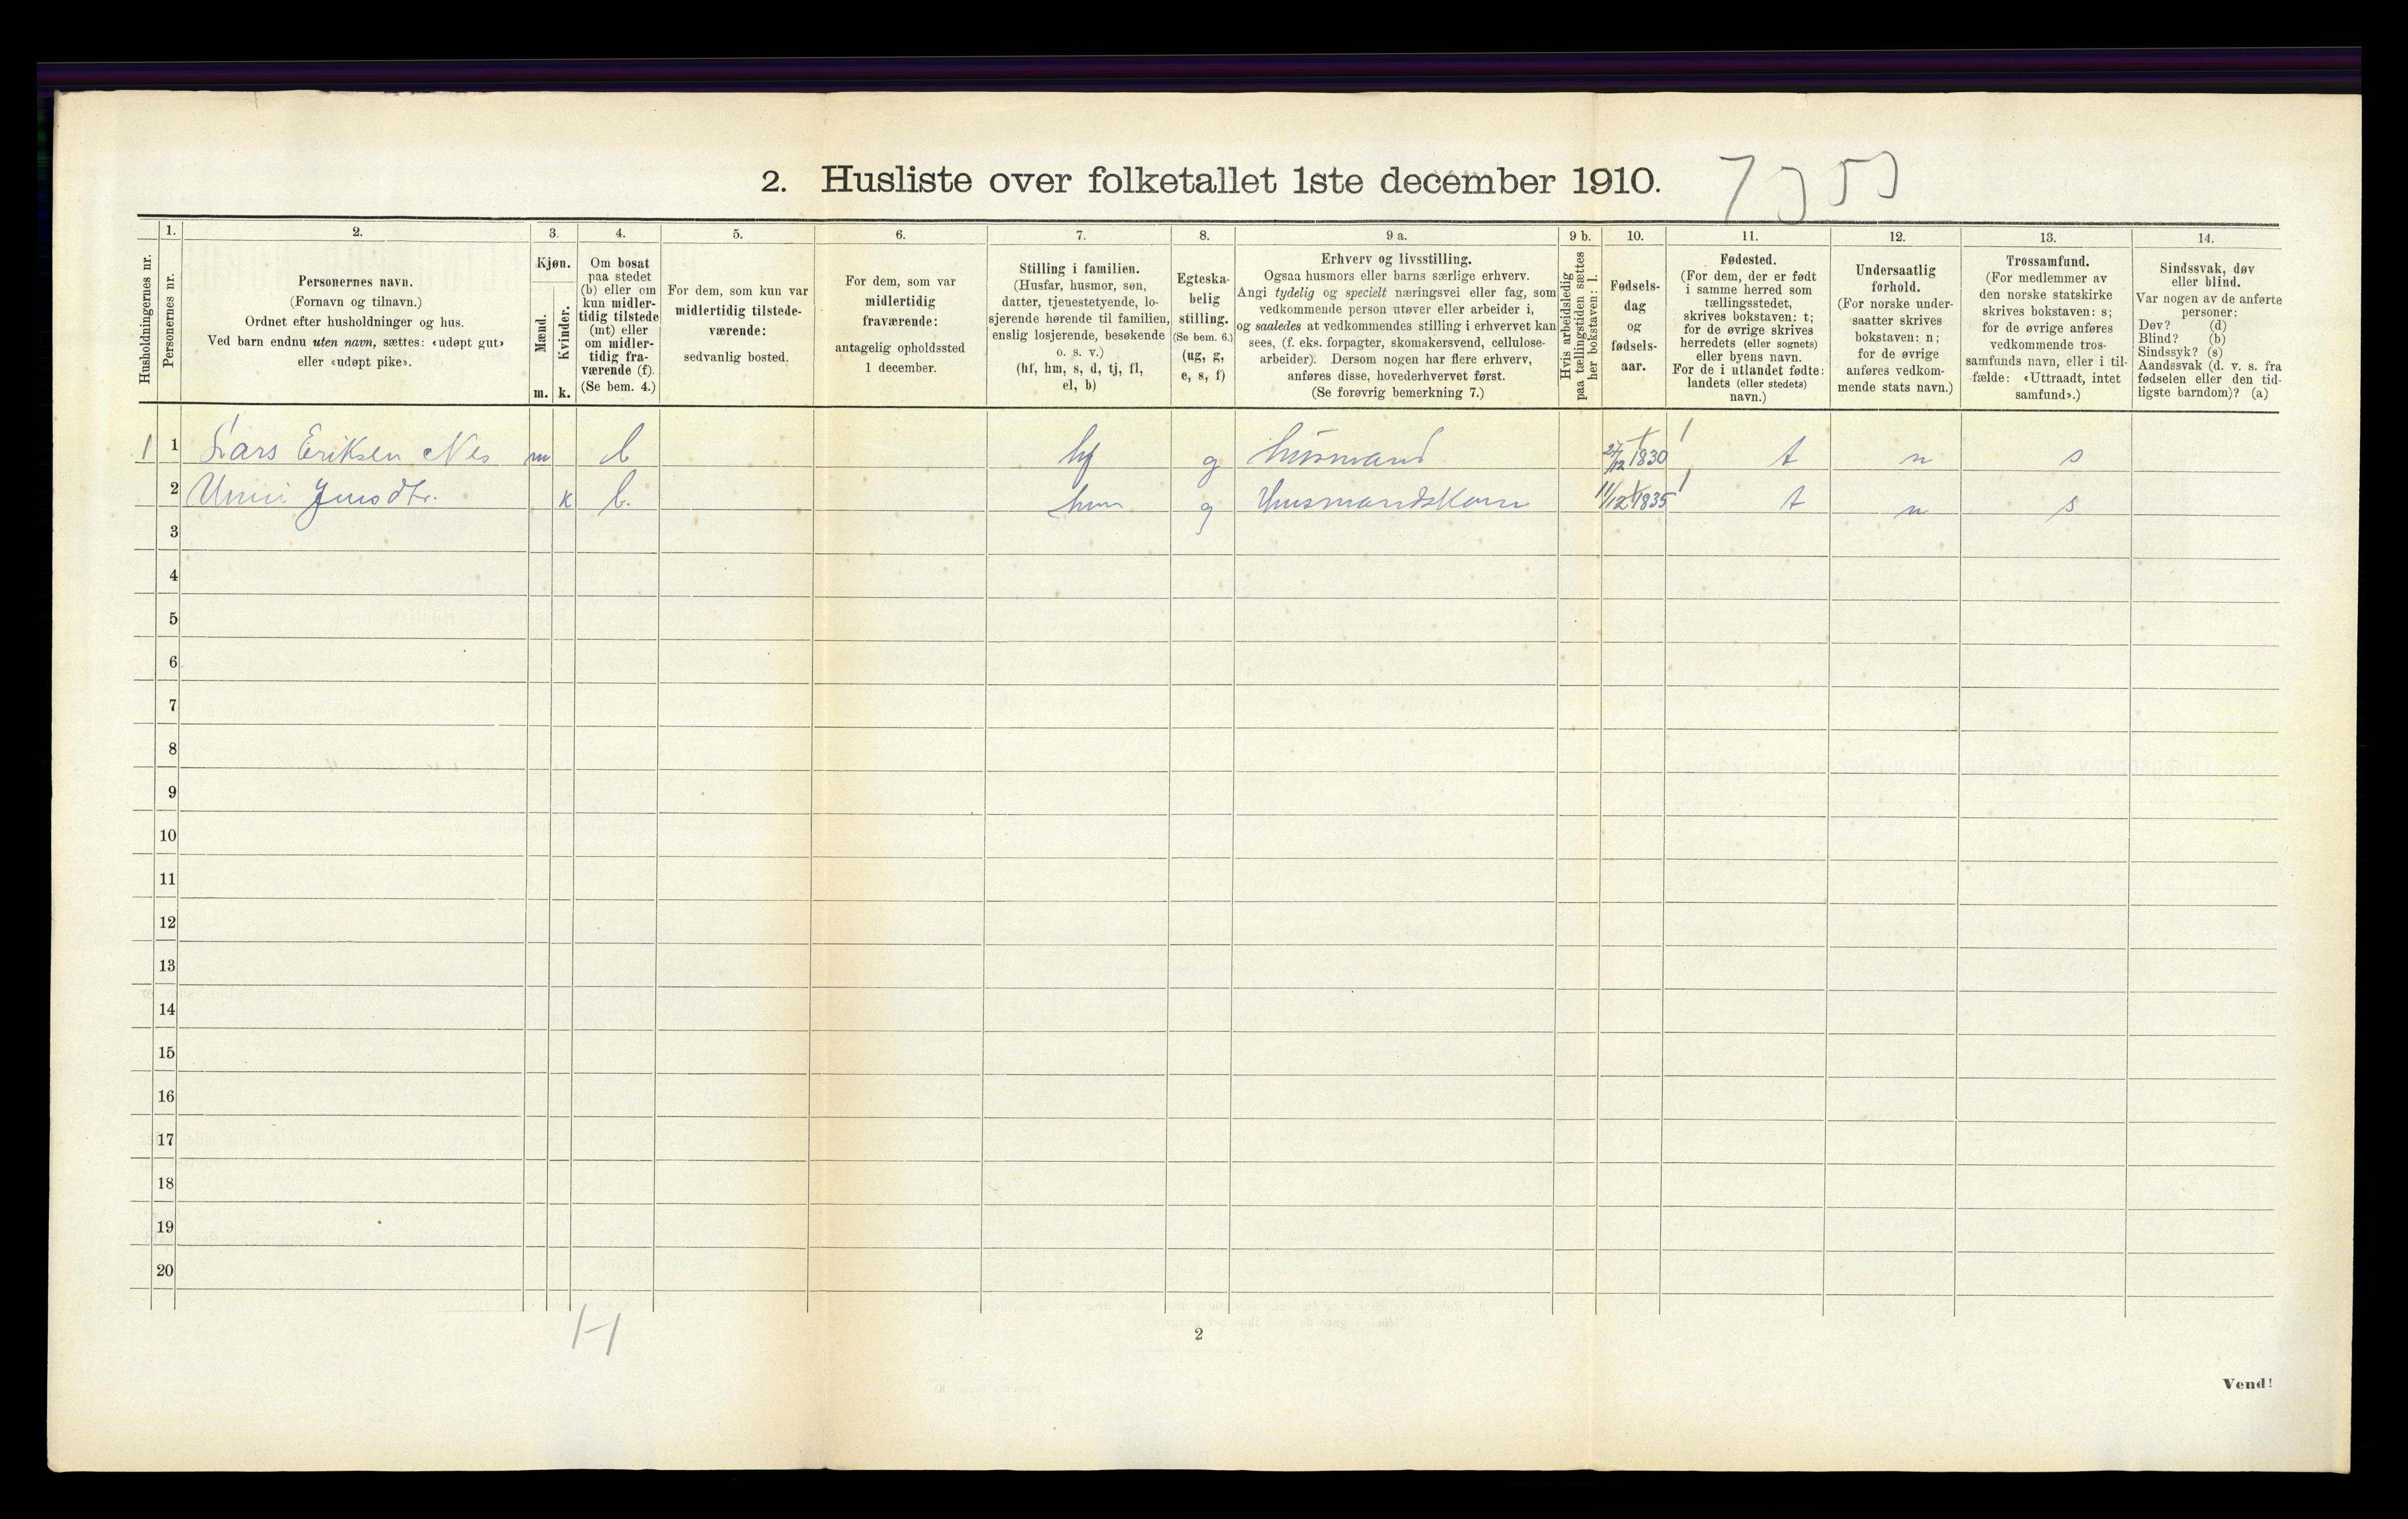 2. Husliste over folketallet 1ste december 1910.
Husholdningernes nr.
1.
Personernes nr.
2.
Personernes navn.
(Fornavn og tilnavn.)
Ordnet efter husholdninger og hus.
Ved barn endnu uten navn, sættes: «udøpt gut»
eller «udøpt pike».
3.
Kjøn.
Mænd.
m.
Kvinder.
k.
4.
Om bosat
paa stedet
(b) eller om
kun midler-
tidig tilstede
(mt) eller
om midler-
tidig fra-
værende (f).
(Se bem. 4.)
5.
For dem, som kun var
midlertidig tilstede-
værende:
sedvanlig bosted.
6.
For dem, som var
midlertidig
fraværende:
antagelig opholdssted
1 december.
7.
Stilling i familien.
(Husfar, husmor, søn,
datter, tjenestetyende, lo-
sjerende hørende til familien,
enslig losjerende, besøkende
o. s. v.)
(hf, hm, s, d, tj, fl,
el, b)
8.
Egteska-
belig
stilling.
(Se bem. 6.)
(ug, g,
e, s, f)
9 a.
Erhverv og livsstilling.
Ogsaa husmors eller barns særlige erhverv.
Angi tydelig og specielt næringsvei eller fag, som
vedkommende person utøver eller arbeider i,
og saaledes at vedkommendes stilling i erhvervet kan
sees, (f. eks. forpagter, skomakersvend, cellulose-
arbeider). Dersom nogen har flere erhverv,
anføres disse, hovederhvervet først.
(Se forøvrig bemerkning 7.)
9 b.
Hvis arbeidsledig
paa tællingstiden sættes
her bokstaven: l.
10.
Fødsels-
dag
og
fødsels-
aar.
11.
Fødested.
(For dem, der er født
i samme herred som
tællingsstedet,
skrives bokstaven: t;
for de øvrige skrives
herredets (eller sognets)
eller byens navn.
For de i utlandet fødte:
landets (eller stedets)
navn.)
12.
Undersaatlig
forhold.
(For norske under-
saatter skrives
bokstaven: n;
for de øvrige
anføres vedkom-
mende stats navn.)
13.
Trossamfund.
(For medlemmer av
den norske statskirke
skrives bokstaven: s;
for de øvrige anføres
vedkommende tros-
samfunds navn, eller i til-
fælde: «Uttraadt, intet
samfund».)
14.
Sindssvak, døv
eller blind.
Var nogen av de anførte
personer:
Døv? (d)
Blind? (b)
Sindssyk? (s)
Aandssvak (d. v. s. fra
fødselen eller den tid-
ligste barndom)? (a)
1 1 Lars Eriksen Nes m b hf g husmand 27/12 1830 t n s
2 k b. hm g 11/12 1835 t n s
3
4
5
6
7
8
9
10
11
12
13
14
15
16
17
18
19
20
1-1
2
Vend!